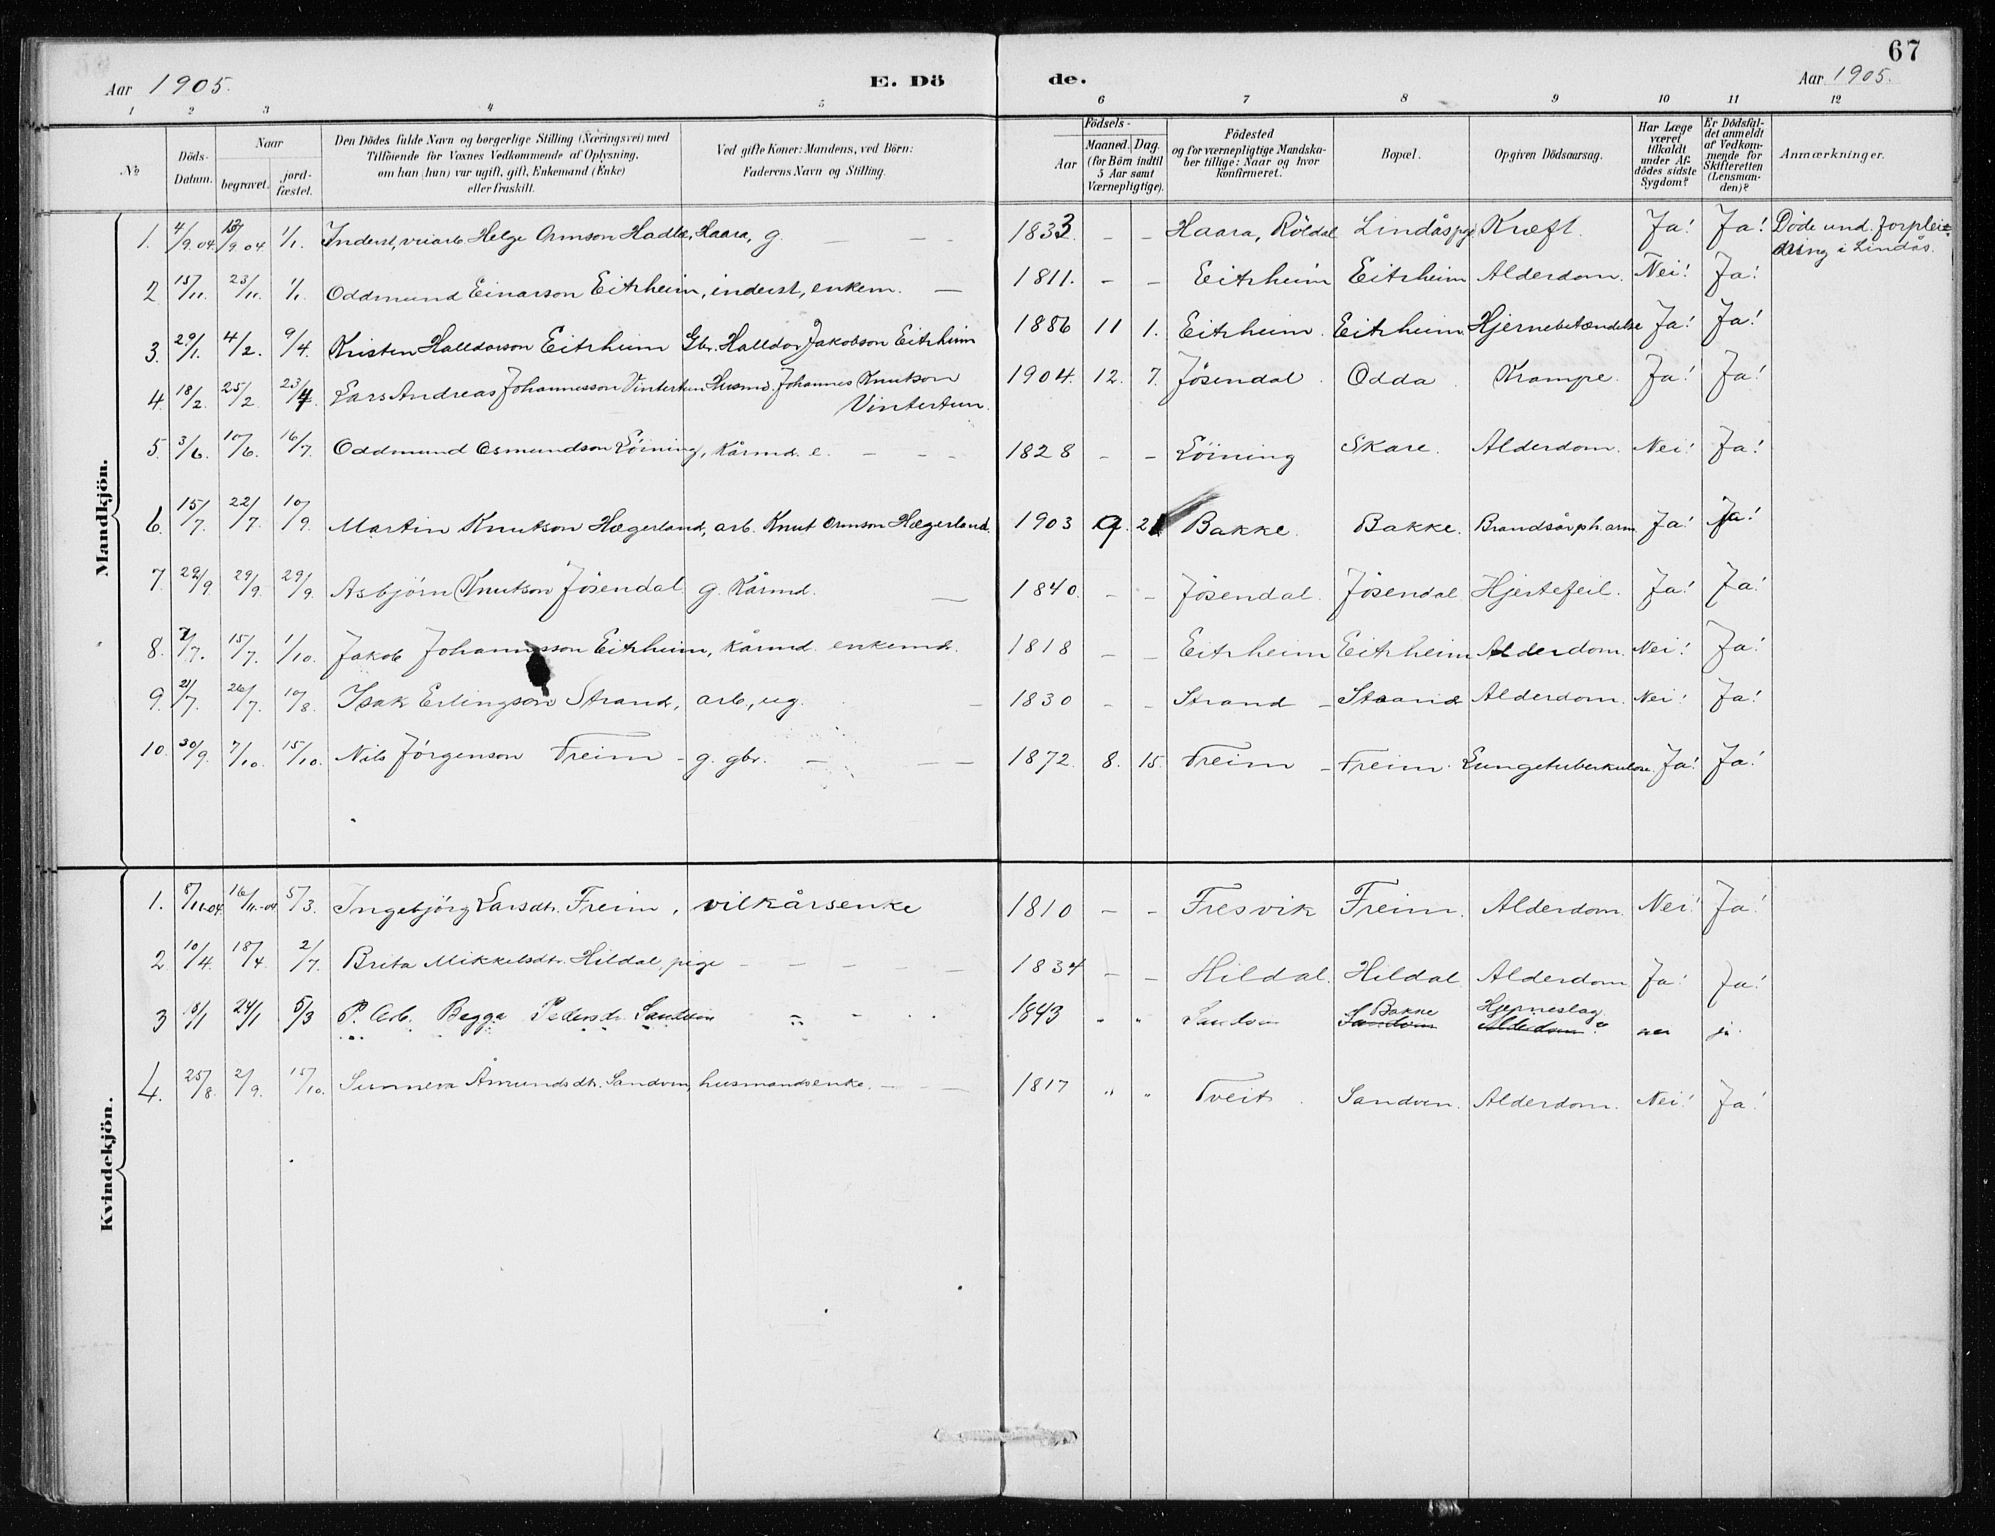 67
Aar 1905. E. Dö de. Aar 1905.
1 2 3 4 5 6 7 8 9 10 11 12
№
Döds-Datum.
Naar
begravet.
jord-fæstet.
Den Dödes fulde Navn og borgerlige Stilling (Næringsvei) med
Tilföiende for Voxnes Vedkommende af Oplysning,
om han (hun) var ugift, gift, Enkemand (Enke)
eller fraskilt.
Ved gifte Koner: Mandens, ved Börn:
Faderens Navn og Stilling.
Födsels-
Aar
Maaned. Dag.
(for Börn indtil
5 Aar samt
Værnepligtige).
Födested
og for værnepligtige Mandska-
ber tillige: Naar og hvor
konfirmeret.
Bopæl.
Opgiven Dödsaarsag.
Har Læge
været
tilkaldt
under Af-
dödes sidste
Sygdom?
Er Dödsfal-
det anmeldt
af Vedkom-
mende for
Skifteretten
(Lensman-
den)?
Anmærkninger.
Mandkjön.
1. 4/9.04 /9 04 1/1. Inderst, veiarb Helge Ormson Hadle, Haara, g. – – – 1833. – – Haara, Röldal Lindåspgj. Kræft. Ja! Ja! Döde und. forplei-
ning i Lindås.
2 15/11. 23/11. 1/1. Oddmund Einarson Eitrheim, inderst, enkem. – 1811. – – Eitrheim Eitrheim Alderdom. Nei! Ja!
3. 29/1. 4/2. 9/4. Kristen Halldorson Eitrheim Gbr. Halldor Jakobson Eitrheim 1886 11 1. Eitrheim. Eitrheim Hjernebetændelse Ja! Ja!
4. 18/2. 25/2 23/4. Lars Andreas Johannesson Vintertun Husmd. Johannes Knutson
Vintertun. 1904. 12. 7. Jösendal. Odda Krampe. Ja! Ja!
5. 3/6. 10/6. 16/7. Oddmund Osmundson Löining, Kårmd. e. – – – 1828 – – Löining Skare. Alderdom. Nei! Ja!
6. 15/7. 22/7. 10/9. Martin Knutson Hægerland, arb. Knut Ormson Hægerland. 1903 9. 21 Bakke. Bakke. Brandsår på h. arm Ja! Ja!
7. 22/9. 29/9. 29/9. Asbjörn Knutson Jösendal g. Kårmd. – 1840. – – Jösendal. Jösendal Hjertefeil. Ja! Ja!
8. 7/7. 15/7. 1/10. Jakob Johannesson Eitrheim, kårmd. enkemd. 1818 – – Eitrheim Eitrheim Alderdom. Nei! Ja!
9. 21/7. 26/7. 10/8. Isak Erlingson Strand, arb, ug. – 1830 – – Strand – Strand Alderdom. Nei! Ja!
10. 30/9. 7/10. 15/10. Nils Jörgenson Freim – g. gbr. – – – 1872. 8. 15. Freim – Freim. Lungetuberkulose. Ja! Ja!
Kvindekjön.
1. 8/11.-04. 16/11.-04 5/3. Ingebjörg Larsdtr. Freim, vilkårsenke 1810 – – Fresvik Freim. Alderdom. Nei! Ja!
2. 10/4. 18/4. 2/7. Brita Mikkelsdtr. Hildal, pige – – – – – 1834 – – Hildal. Hildal Alderdom Ja! Ja!
3 18/1 24/1 5/3 P. Arb. Begga Pedersdtr. Sandven „ 1843 „ „ Sandven Bakke
Sandven Hjerneslag
Alderdom nei ja.
4. 25/8 2/9. 15/10. Sunneva Åmundsdtr. Sandven, husmandsenke. – – 1817 „ „ Tveit. Sandven. Alderdom. Nei! Ja!